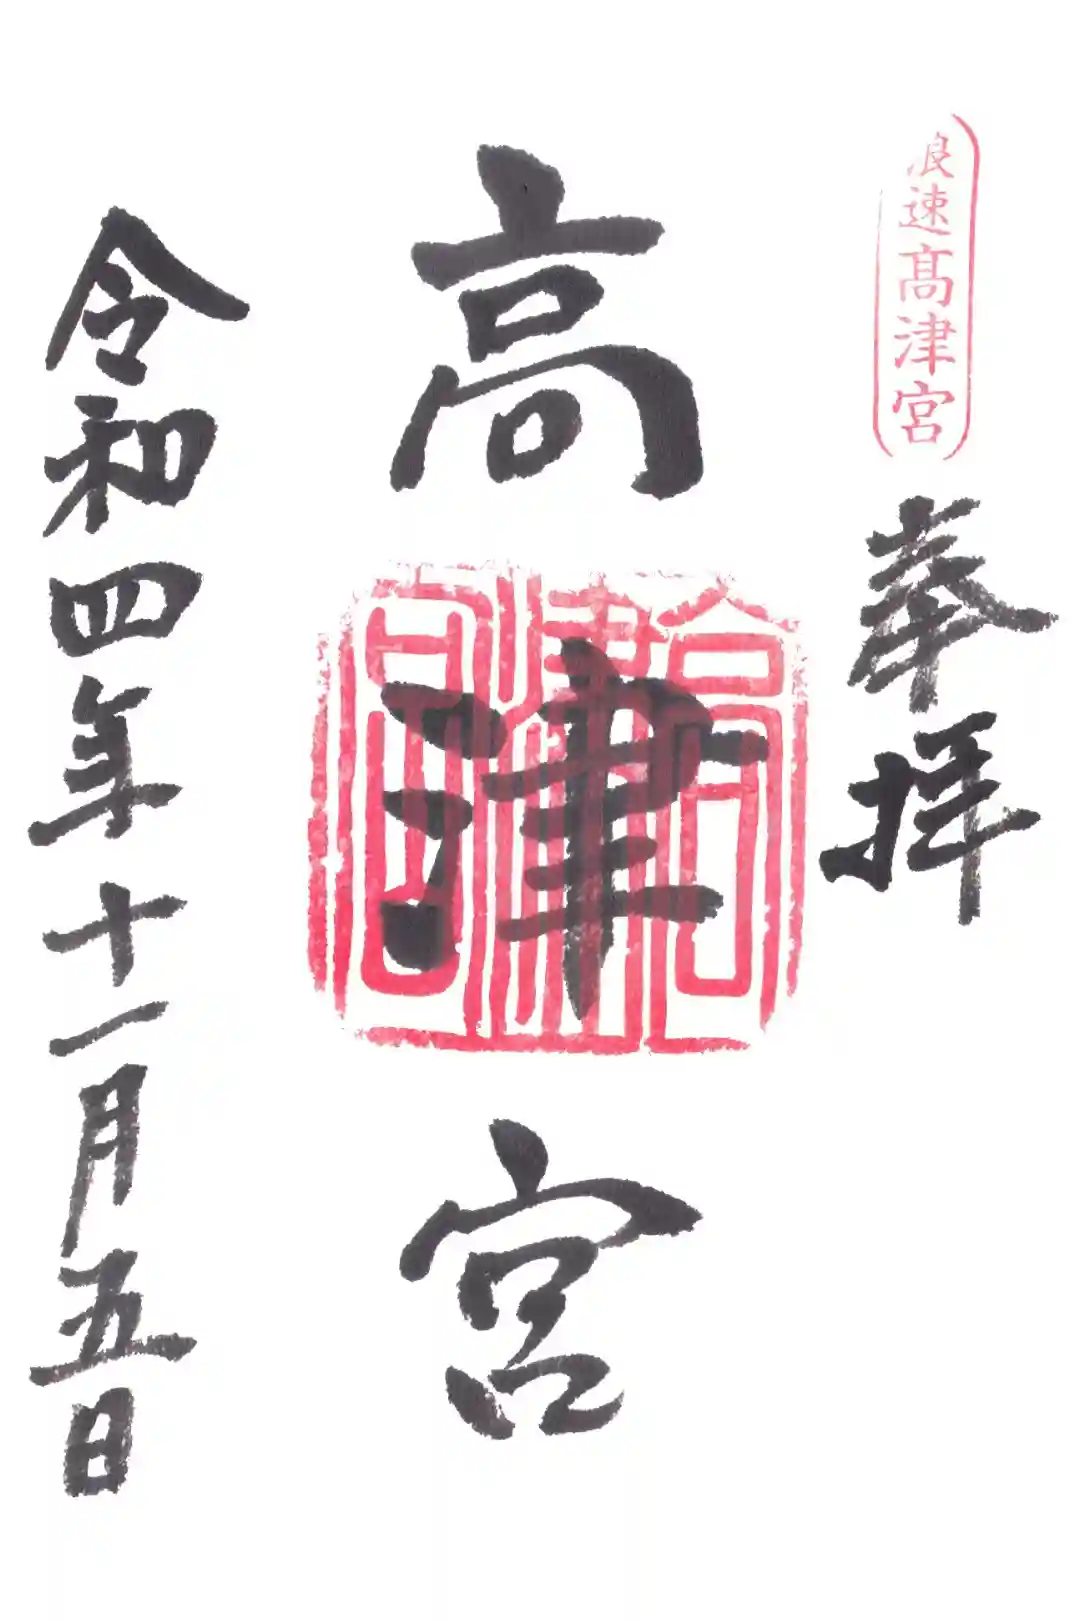 浪速髙津宮
奉拝
高津宮
高津宮
令和四年十一月五日